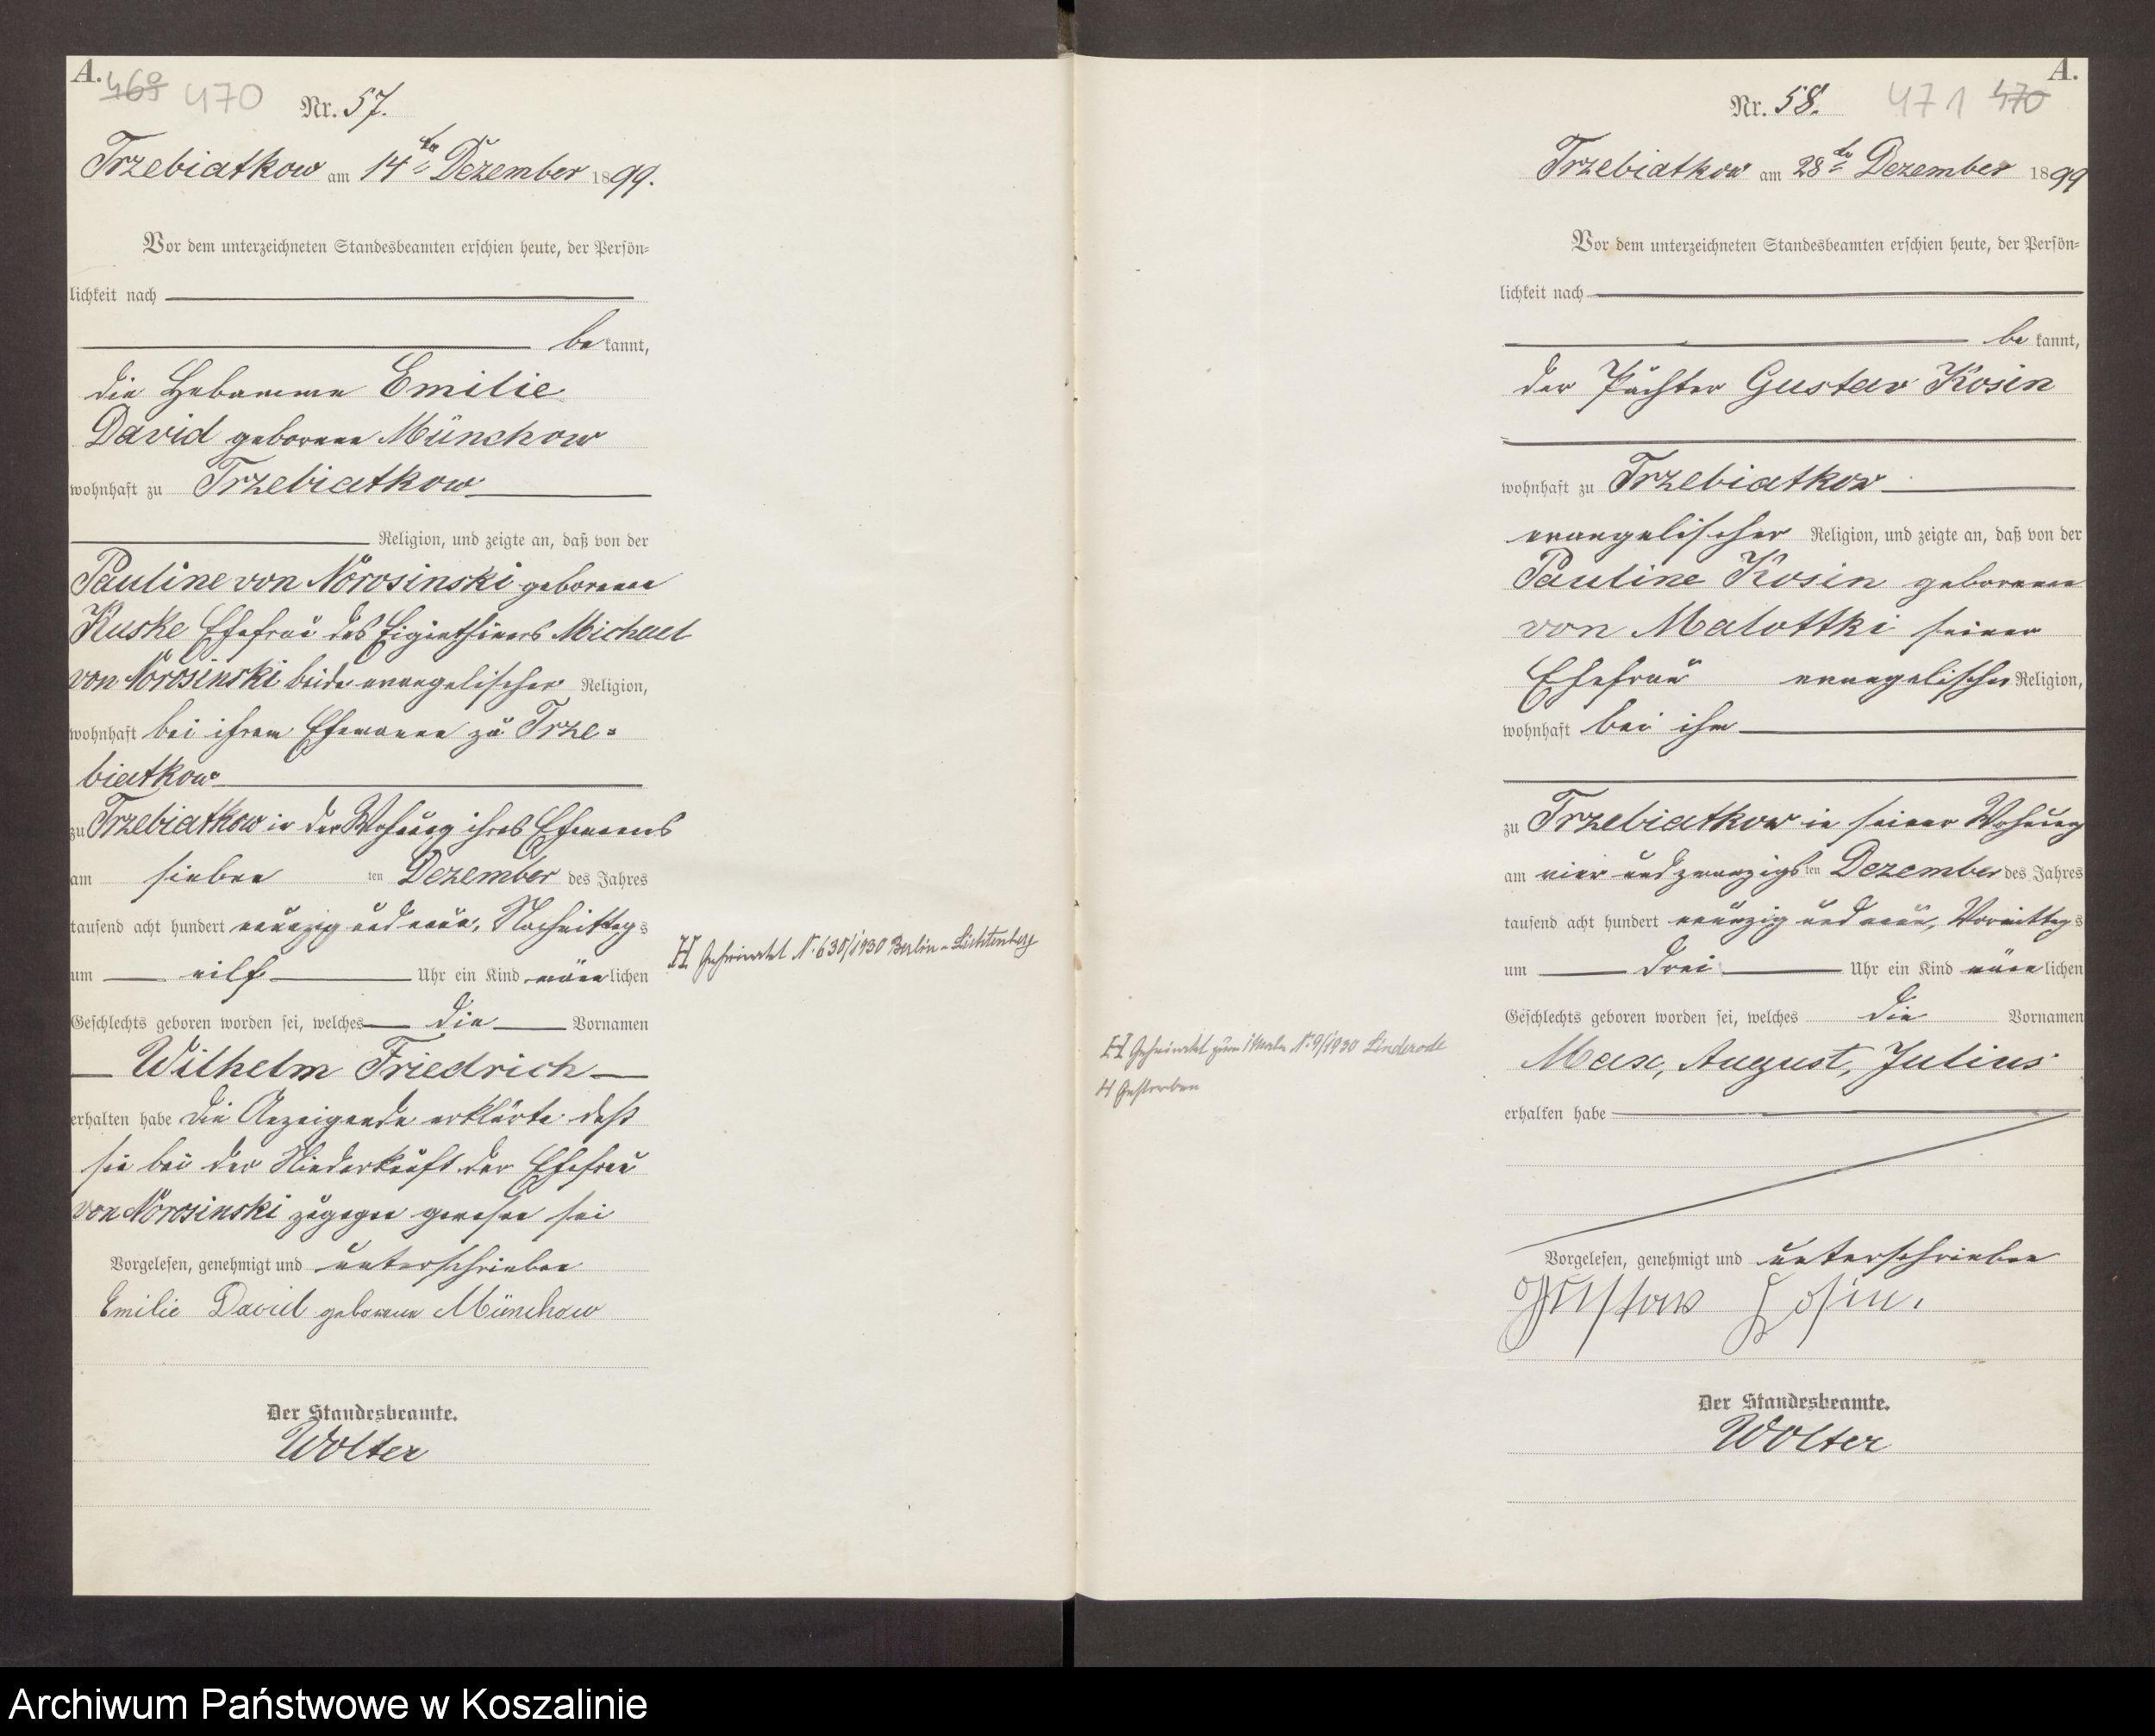 A.
469 470
Nr. 57.
Trzebiatkow am 14ten Dezember 1899.
Vor dem unterzeichneten Standesbeamten erschien heute, der Persön=
lichkeit nach
bekannt,
die Hebamme Emilie
David geborene Münchow
wohnhaft zu Trzebiatkow
Religion, und zeigte an, daß von der
Pauline von Wrosinski geborene
Kuske Ehefrau des Eigenthümers Michael
von Wrosinski beide evangelischer Religion,
wohnhaft bei ihrem Ehemanne zu Trze=
biatkow
zu Trzebiatkow in der Wohnung ihres Ehemanns
am siebenten Dezember des Jahres
tausend acht hundert neunzig und neun, Nachmittags
um eilf Uhr ein Kind männlichen
Geschlechts geboren worden sei, welches die Vornamen
Wilhelm Friedrich
erhalten habe Die Anzeigende erklärte daß
sie bei der Niederkunft der Ehefrau
von Wrosinski zugegen gewesen sei
Vorgelesen, genehmigt und unterschrieben
Emilie David geborene Münchow
Der Standesbeamte.
Wolter
H Geheiratet N. 630/1930 Berlin-Lichtenberg
A.
Nr. 58.
471 470
Trzebiatkow am 28ten Dezember 1899
Vor dem unterzeichneten Standesbeamten erschien heute, der Persön=
lichkeit nach
bekannt,
der Pächter Gustav Kosin
wohnhaft zu Trzebiatkow
evangelischer Religion, und zeigte an, daß von der
Pauline Kosin geborene
von Malottki seiner
Ehefrau evangelischer Religion,
wohnhaft bei ihm
zu Trzebiatkow in seiner Wohnung
am vier und zwanzigsten Dezember des Jahres
tausend acht hundert neunzig und neun, Vormittags
um drei Uhr ein Kind männlichen
Geschlechts geboren worden sei, welches die Vornamen
Max, August, Julius
erhalten habe
Vorgelesen, genehmigt und unterschrieben
Gustav Kosin.
Der Standesbeamte.
Wolter
H Geheiratet zum 1 Male N. 9/1930 Linderode
H Gestorben
Archiwum Państwowe w Koszalinie